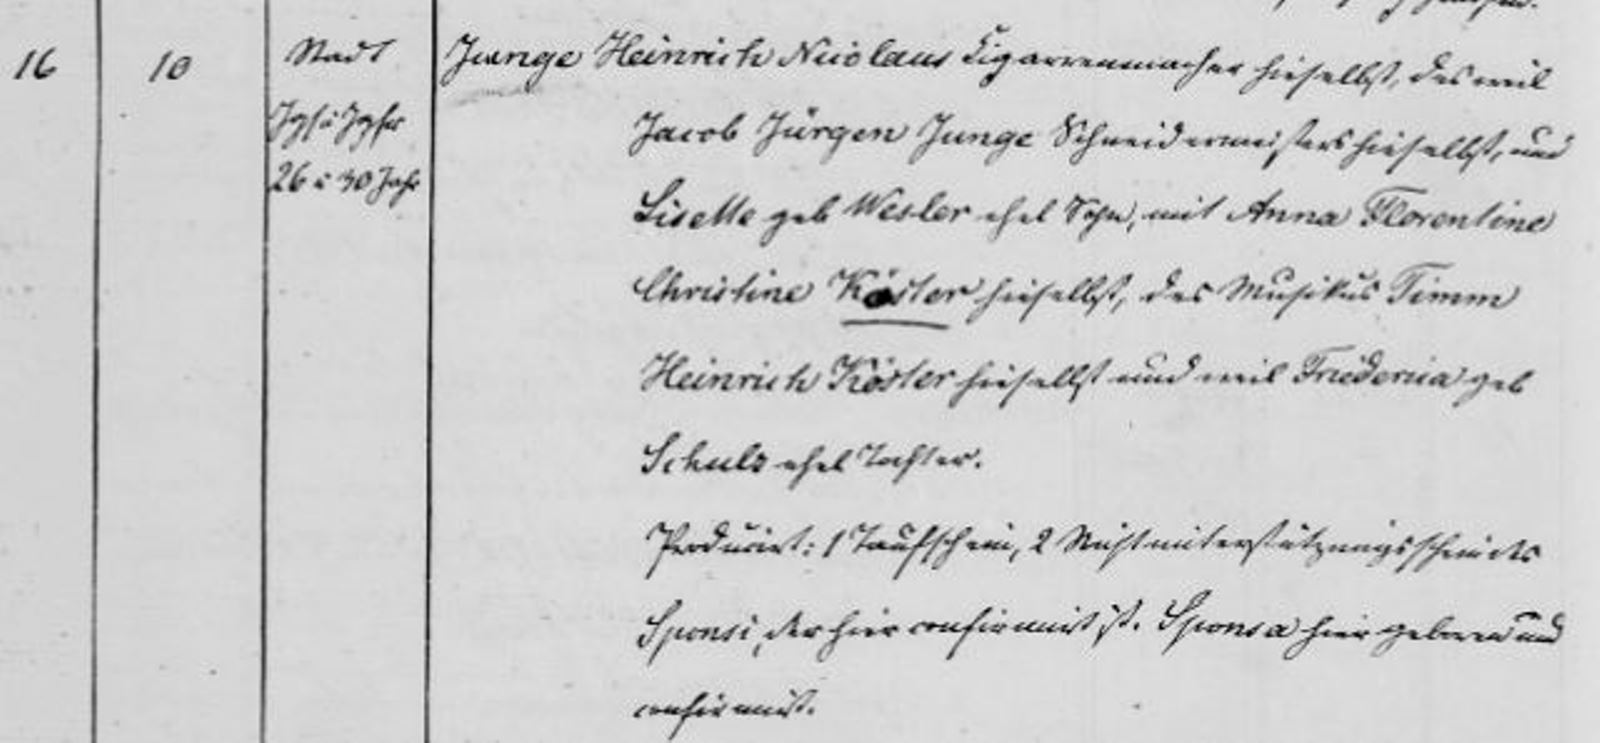 16 10 Stadt Junge Heinrich Nicolaus Cigarrenmacher hieselbst, des weil
Jgs u Jgfr Jacob Jürgen Junge Schneidermeisters hieselbst, und
26 u 30 Jahr
Lisette geb Wesler ehel Sohn, mit Anna Florentine
Christine Köster hieselbst, des Musikus Timm
Heinrich Köster hieselbst und weil Friederica geb
Schulz ehel Tochter.
Producirt: 1 Taufschein, 2 Nichtunterstützungsschein des
Sponsi, der hier confirmirt ist. Sponsa hier geboren und
confirmirt.